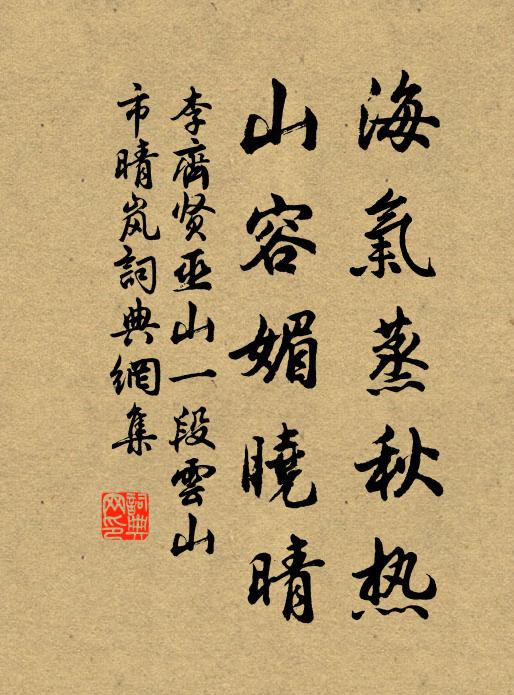 海氣蒸秋热
山容媚曉晴
李齊贤巫山一段雲山
市晴岚詞典網集
詞典网印